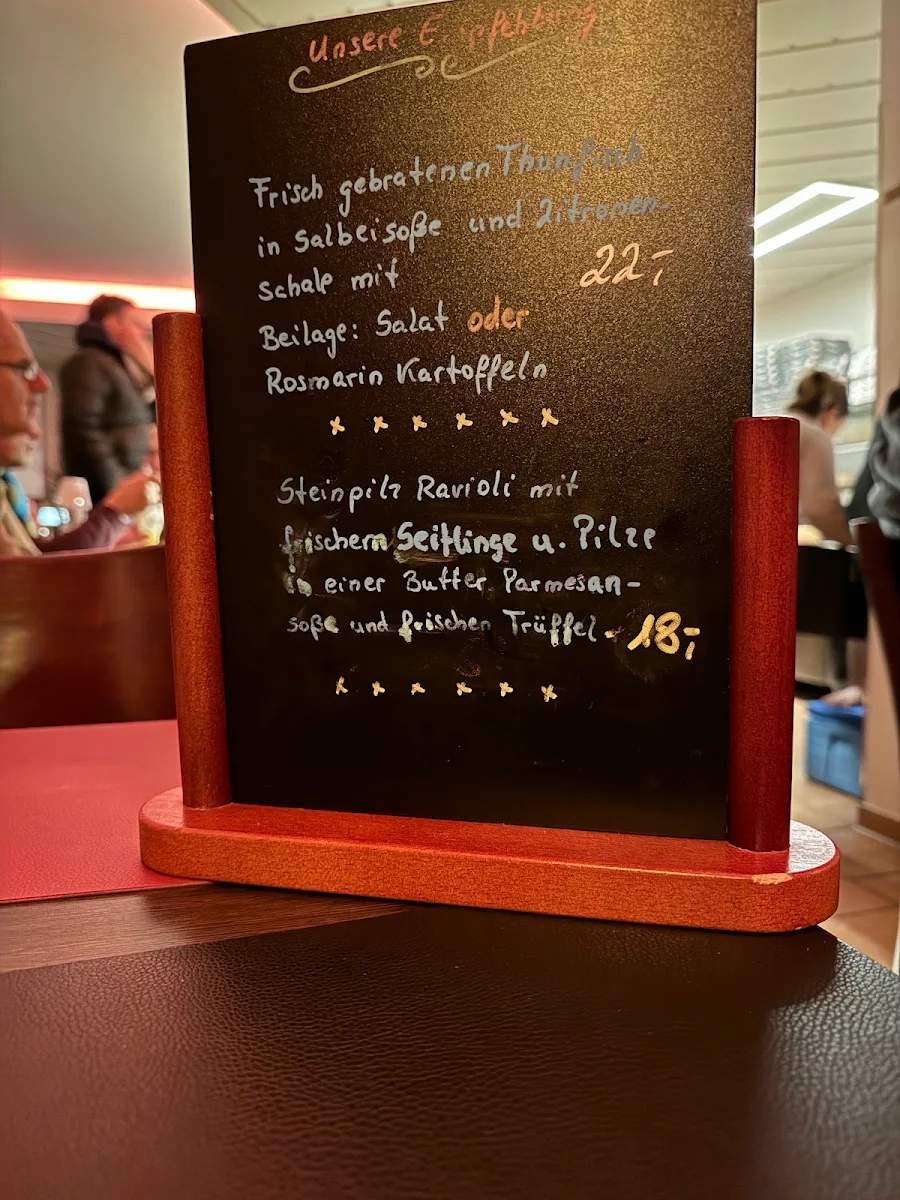 Unsere Empfehlung
Frisch gebratenen Thunfisch
in Salbeisoße und Zitronen-
schale mit 22,-
Beilage: Salat oder
Rosmarin Kartoffeln
x x x x x x
Steinpilz Ravioli mit
frischem Seitlinge u. Pilze
in einer Butter Parmesan-
soße und frischen Trüffel. 18,-
x x x x x x